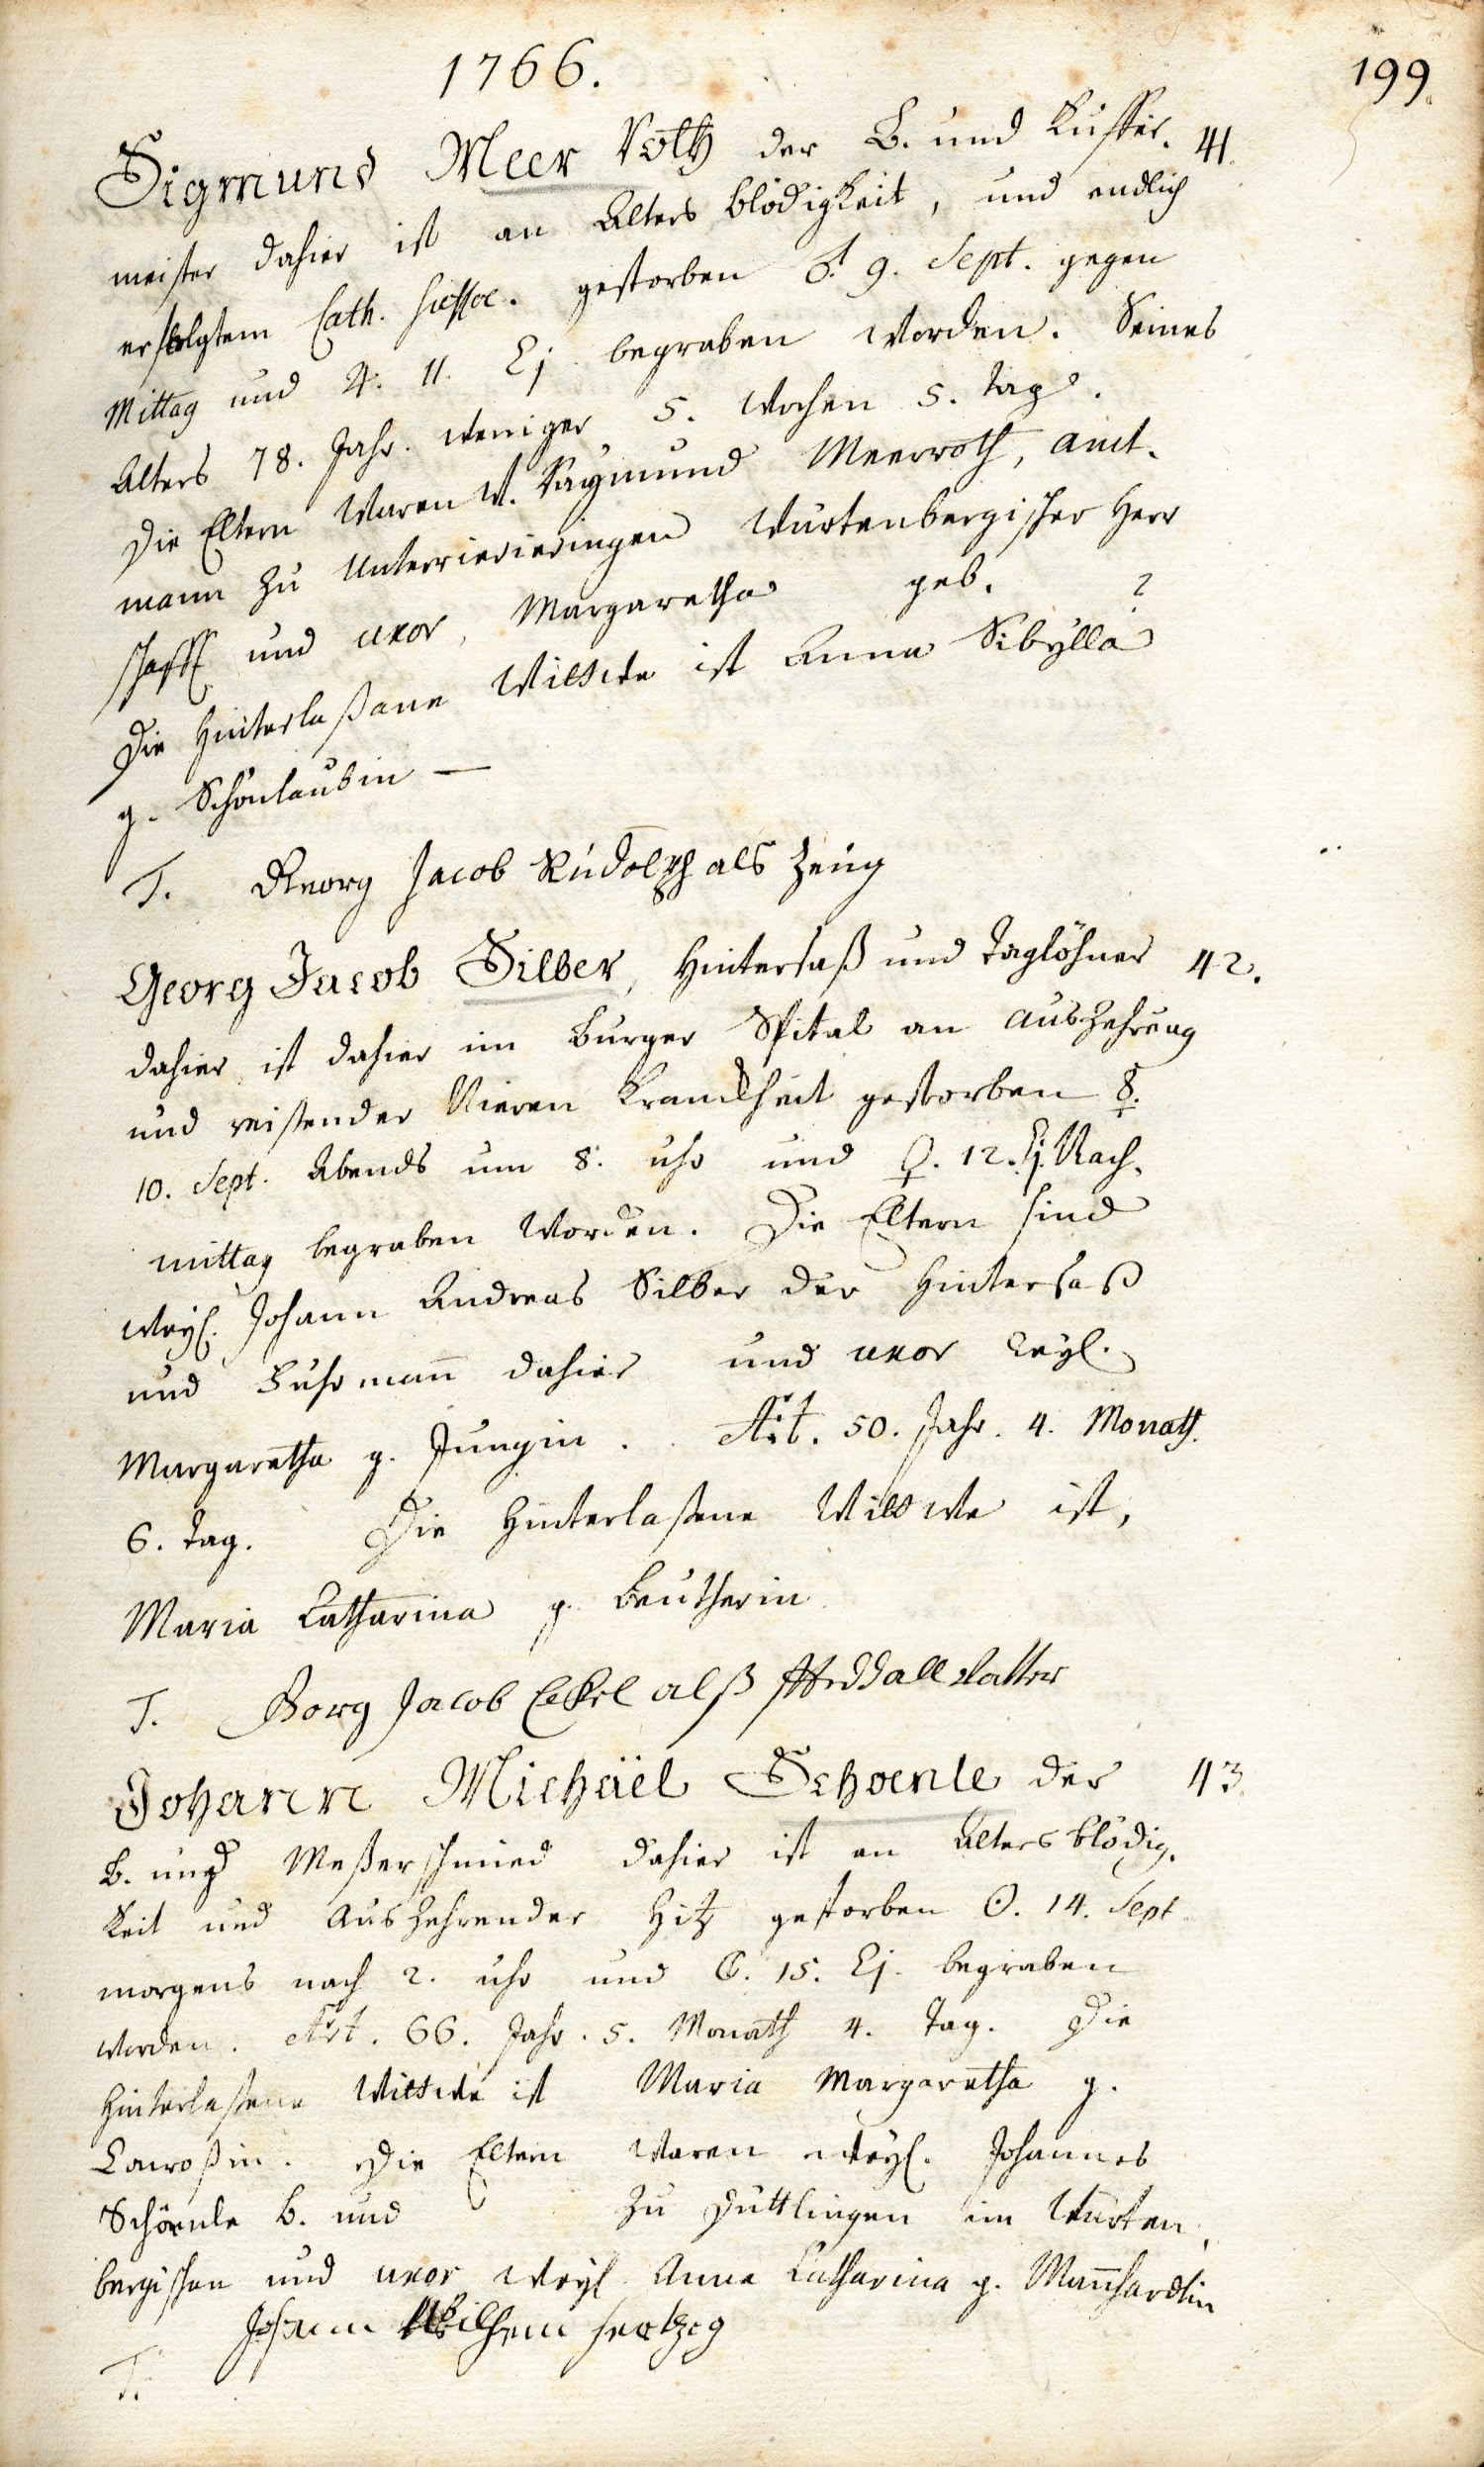 1766.
199.
Sigmund Meer Roth der B. und Kuffer- 41.
meister dahier ist an Alters Blödigkeit, und endlich
erfolgtem Cath. suffoc. gestorben ♂ 9. Sept. gegen
Mittag und ♃. 11. Ej. begraben worden. Seines
Alters 78. Jahr. weniger 5. Wochen 5. Tag.
Die Eltern waren W. Raymund Meerroth, Amt-
mann zu Unterriexingen Würtenbergischer Herr
schafft und uxor, Margaretha geb. ?
Die Hinterlaßene Wittwe ist Anna Sibylla
g. Schönlaubin —
T. Georg Jacob Rudolph als Zeug
Georg Jacob Silber, Hintersaß und Taglöhner 42.
dahier ist dahier im Burger Spital an Auszehrung
und reisender Nieren Kranckheit gestorben ☿.
10. Sept. Abends um 8. uhr und ♀. 12. Ej. Nach-
mittag begraben worden. Die Eltern sind
weyl. Johann Andreas Silber der Hintersaß
und Fuhrmann dahier und uxor weyl.
Margaretha g. Jungin. Aet. 50. Jahr. 4. Monath.
6. Tag. Die Hinterlaßene Wittwe ist,
Maria Catharina g. Beutherin
T. Gorg Jacob Eckel alß
Johann Michäel Schoenle der 43.
B. und Meßerschmied dahier ist an Alters blödig-
keit und Auszehrender Hitz gestorben ☉. 14. Sept
morgens nach 2. uhr und ☾. 15. Ej. begraben
worden. Aet. 66. Jahr. 5. Monath 4. Tag. Die
Hinterlaßene Wittwe ist Maria Margaretha g.
Die Eltern waren weyl. Johannes
Schönle B. und zu Duttlingen im Würten-
bergischen und uxor weyl. Anna Catharina g. Mannhardtin
Johann Wilhem Hertzog
T.